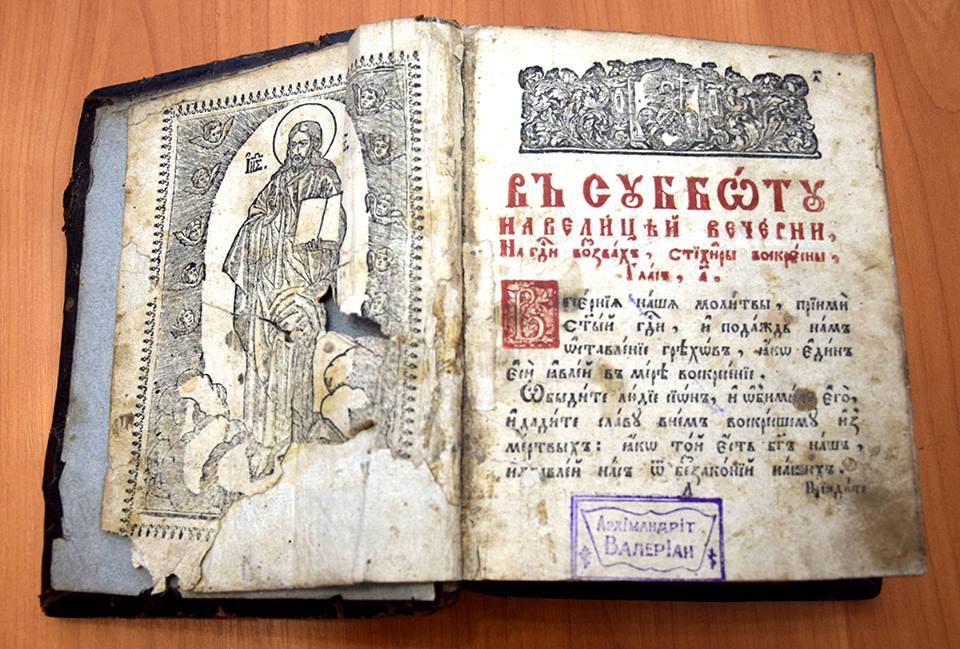 ІИ҃С.
ВЪ СУББѠ́ТУ
НА ВЕЛИ́ЦѢЙ ВЕЧЕ́РНИ,
На гд҇и воззва́хъ, стїхи̑ры воскрⷭ҇ны,
Гла́съ, а҃.
Вече́рнїѧ на́шѧ моли̑твы, прїимѝ
ст҃ы́й гд҇и, и҆ пода́ждь на́мъ
ѡ҆ставле́нїе грѣхѡ́въ, ꙗ҆́кѡ є҆ди́нъ
є҆сѝ ꙗ҆вле́й въ мі́рѣ воскресе́нїе.
Ѡ҆бы́дите лю́дїе сїѡ́нъ, и҆ ѡ҆б̾ими́те є҆го̀,
и҆ дади́те сла́ву въ не́мъ воскре́сшему и҆з̾
ме́ртвыхъ: ꙗ҆́кѡ то́й є҆́сть бг҃ъ на́шъ,
и҆зба́влей на́съ ѿ беззако́нїй на́шихъ.
а Прїиди́те
АРХІМАНДРІТ
ВАЛЕРІАН